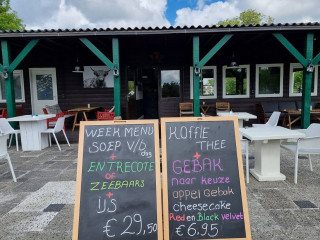 WEEK MENU
SOEP v/d dag
+
ENTRECOTE
OF
ZEEBAARS
+
IJS
€ 29,50
KOFFIE
THEE
+
GEBAK
naar keuze
appel Gebak
cheesecake
Red en Black velvet
€ 6,95